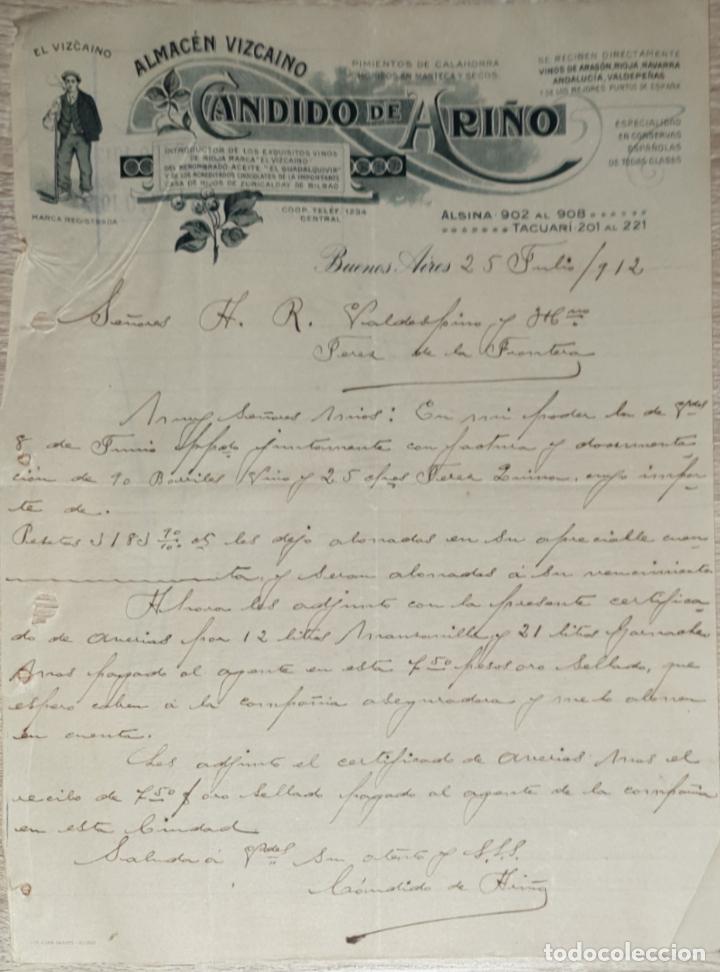 EL VIZCAINO
ALMACÉN VIZCAINO
PIMIENTOS DE CALAHORRA
CHORIZOS EN MANTECA Y SECOS.
SE RECIBEN DIRECTAMENTE
VINOS DE ARAGÓN, RIOJA, NAVARRA
ANDALUCIA, VALDEPEÑAS
Y DE LOS MEJORES PUNTOS DE ESPAÑA
CANDIDO DE ARIÑO
ESPECIALIDAD
EN CONSERVAS
ESPAÑOLAS
DE TODAS CLASES
INTRODUCTOR DE LOS EXQUISITOS VINOS
DE RIOJA MARCA "EL VIZCAINO"
DEL RENOMBRADO ACEITE "EL GUADALQUIVIR"
Y DE LOS ACREDITADOS CHOCOLATES DE LA IMPORTANTE
CASA DE HIJOS DE ZURICALDAY DE BILBAO
MARCA REGISTRADA
COOP. TELÉF. 1234
CENTRAL
ALSINA 902 AL 908
TACUARÍ 201 AL 221
Buenos Aires 25 Julio/912
Señores H. R. Valdespino y Hno
Jerez de la Frontera
Muy Señores Mios: En mi poder la de Vdes
8 de Junio ppdo juntamente con factura y documenta-
ción de 90 Barriles Vino y 25 c/nes Jerez Quina, cuyo impor-
te de.
Pesetas 3183 90/100 les dejo abonadas en su apreciable cuen-
ta, y seran abonadas á su vencimiento
Ahora les adjunto con la presente certifica-
do de averias por 12 litros Manzanilla y 21 litros Garnacha
Mas pagado al agente en esta 7.50 pesos oro Sellado, que
espero cobren á la compañia aseguradora y me lo abonen
en cuenta.
Les adjunto el certificado de averias Mas el
recibo de 7.50 $ oro Sellado pagado al agente de la compañia
en esta Ciudad
Saluda á Vdes Su atento y S.S.S.
Cándido de Ariño
todocoleccion